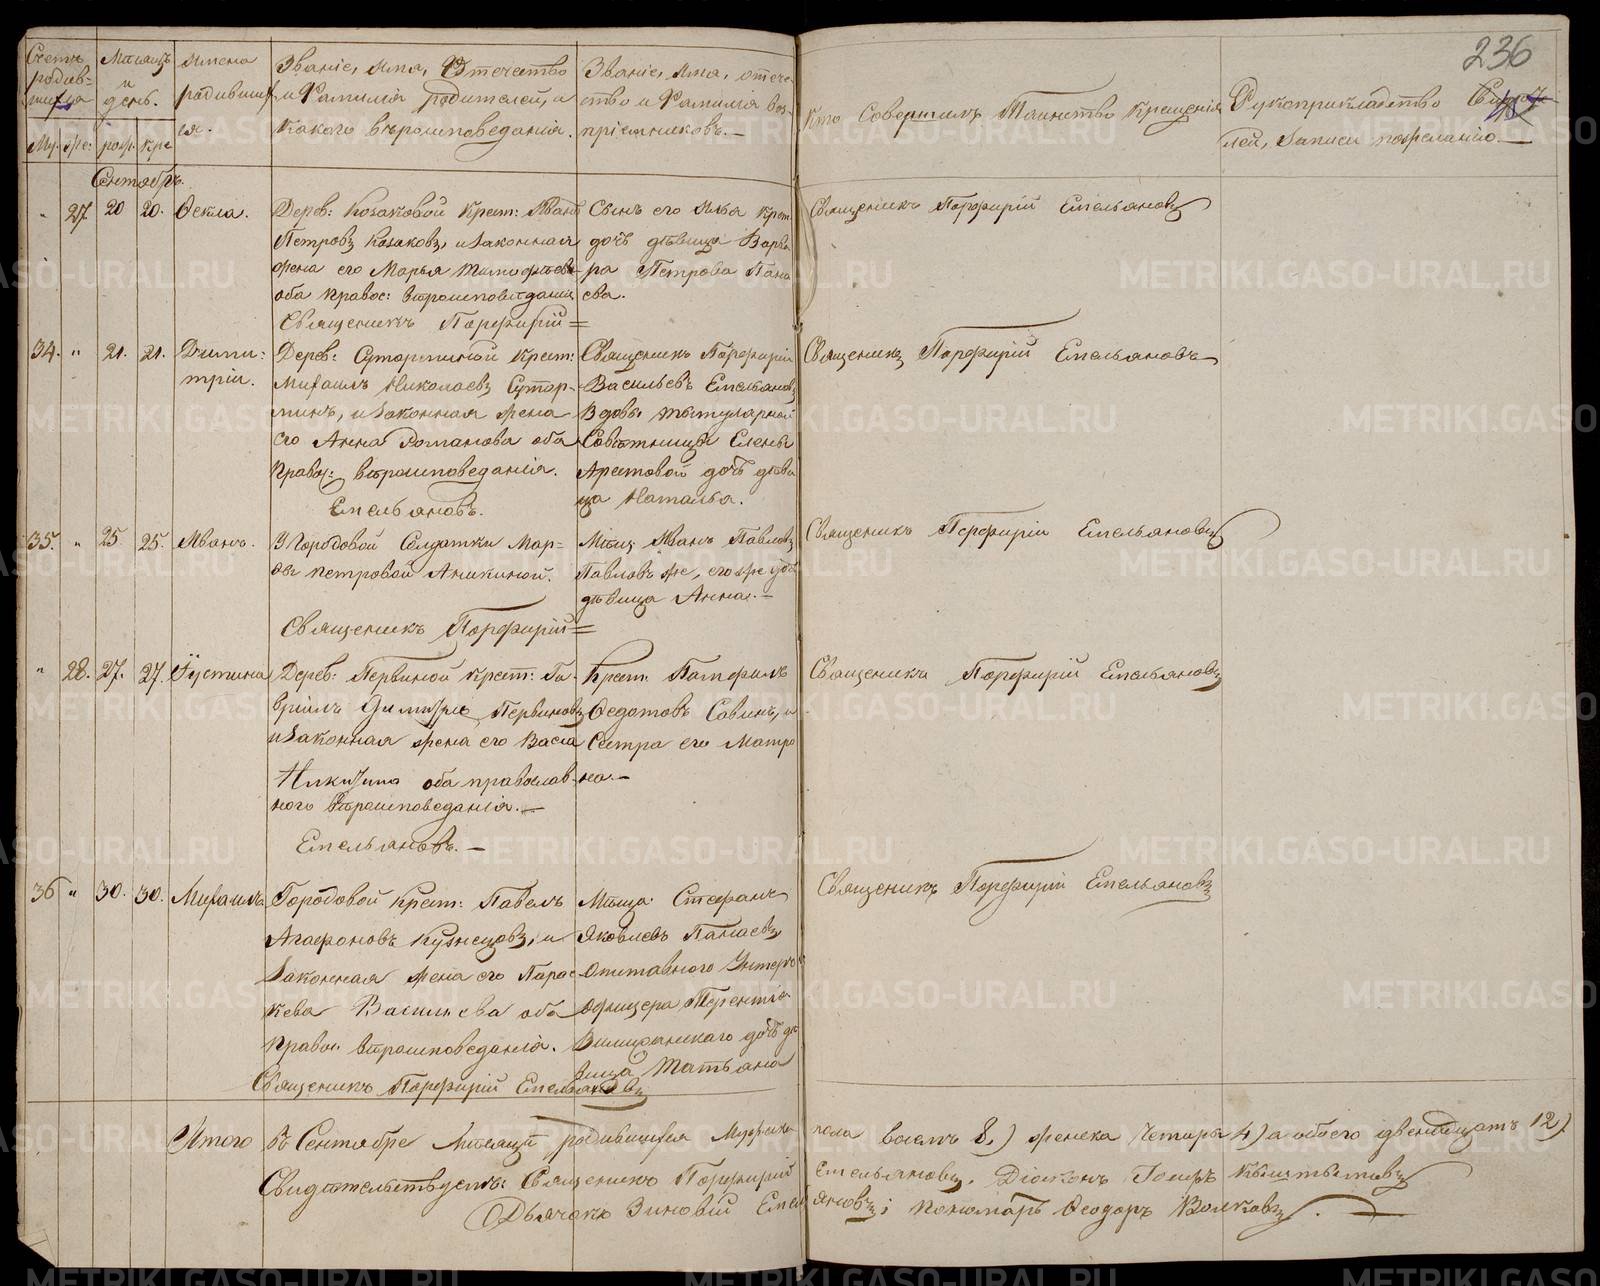 236
Счетъ родив-шихся
Мѣсяцъ и день.
Имена родившихся.
Званіе, имя, Отчество и Фамилія родителей, и какого вѣроисповеданія.
Званіе, имя, отечество и Фамилія воспріемниковъ.
Кто Совершилъ Таинство Крещенія
Рукоприкладство Свидѣтелей, Записи по желанію.
Му. же: рож. кре
Сентябрь.
" 27 20 20. Ѳекла.
Дерев: Козаковой Крест: Иванъ
Петровъ Козаковъ, и Законная
жена его Марья Тимофѣева
оба Правос: вѣроисповѣданія
Сынъ его Илья Крест
дочь дѣвица Варва
ра Петрова Пана
ева.
Священикъ Порфирій Емельяновъ
Священикъ Порфирій =
34. " 21. 21. Дими:
трій.
Дерев: Суторминой Крест:
Михаилъ Николаевъ Сутор-
минъ, и Законная жена
его Анна Романова оба
Правос: вѣроисповеданія.
Емельяновъ.
Священикъ Порфирій
Васильевъ Емельяновъ
Вдовы титулярной
Совѣтницы Елены
Арестовой дочь дѣви
ца Наталья.
Священикъ Порфирій Емельяновъ
35. " 25 25. Иванъ.
Городовой Солдатки Мар-
ѳы Петровой Аникиной.
Мѣщ Иванъ Павловъ
Павловъ же, его же дочь
дѣвица Анна.
Священикъ Порфирій Емельяновъ
Священикъ Порфирій =
" 28. 27. 27. Іустина
Дерев: Первиной Крест: Га-
вріилъ Первиновъ
и Законная жена его Васса
Никитина оба православ-
ного вѣроисповеданія.
Емельяновъ.
Крест: Памфилъ
Ѳедотовъ Савинъ, и
Сестра его Матро
на.
Священикъ Порфирій Емельяновъ
36 " 30. 30. Михаилъ
Городовой Крест: Павелъ
Агафоновъ Кузнецовъ, и
Законная жена его Парас-
кева Васильева оба
Правос. вѣроисповеданія.
Священикъ Порфирій Емельяновъ
Мѣща Стефанъ
Яковлевъ Панаевъ
Отставного Унтеръ
Офицера Терентія
дочь дѣ
вица Татьяна
Священикъ Порфирій Емельяновъ
Итого въ Сентябре Мѣсяцѣ родившихся Мужеска пола восемь 8,) женска Четыре 4) а обоего двенадцать 12)
Свидѣтельствуемъ: Священикъ Порфирій Емельяновъ, Діаконъ
Дьячекъ Зиновій Емельяновъ; Пономарь Ѳеодоръ Волковъ.
METRIKI.GASO-URAL.RU